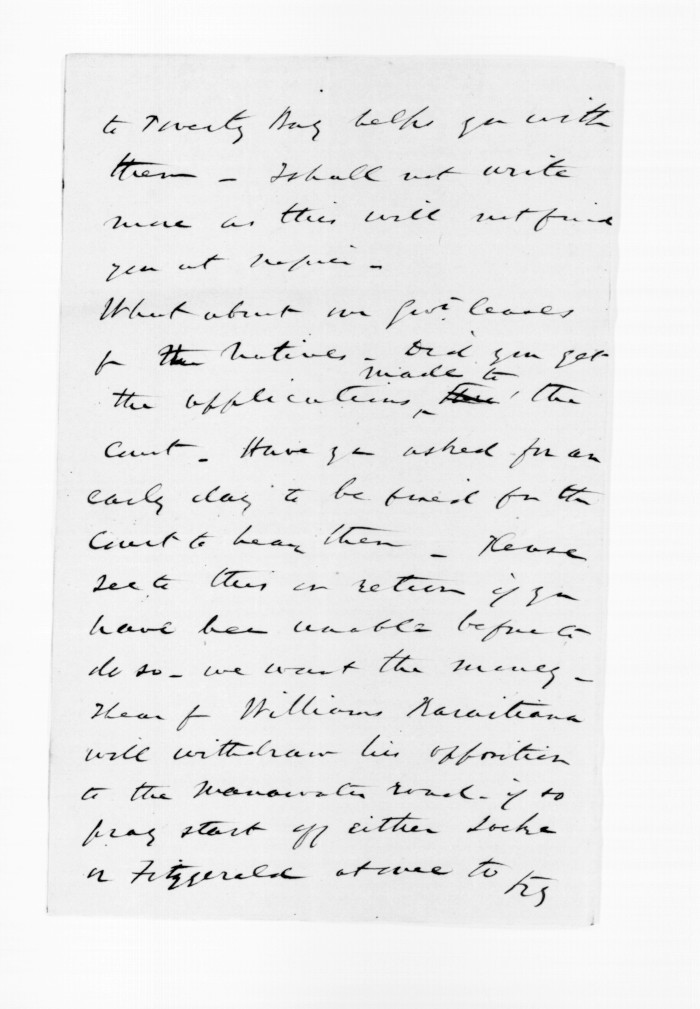 to Poverty Bay helps you with
them - I shall not write
more as this will not find
you at Napier -
What about our Govt leases
fr the Natives - Did you get
made to
the applications the the
Court - Have you asked for an
early day to be fixed for the
Court to hear them - Please
see to this on return if you
have been unable before to
do so - we want the money -
I hear fr Williams Karaitiana
will withdraw his opposition
to the Manawatu road - if so
pray start off either Locke
or Fitzgerald at once to try